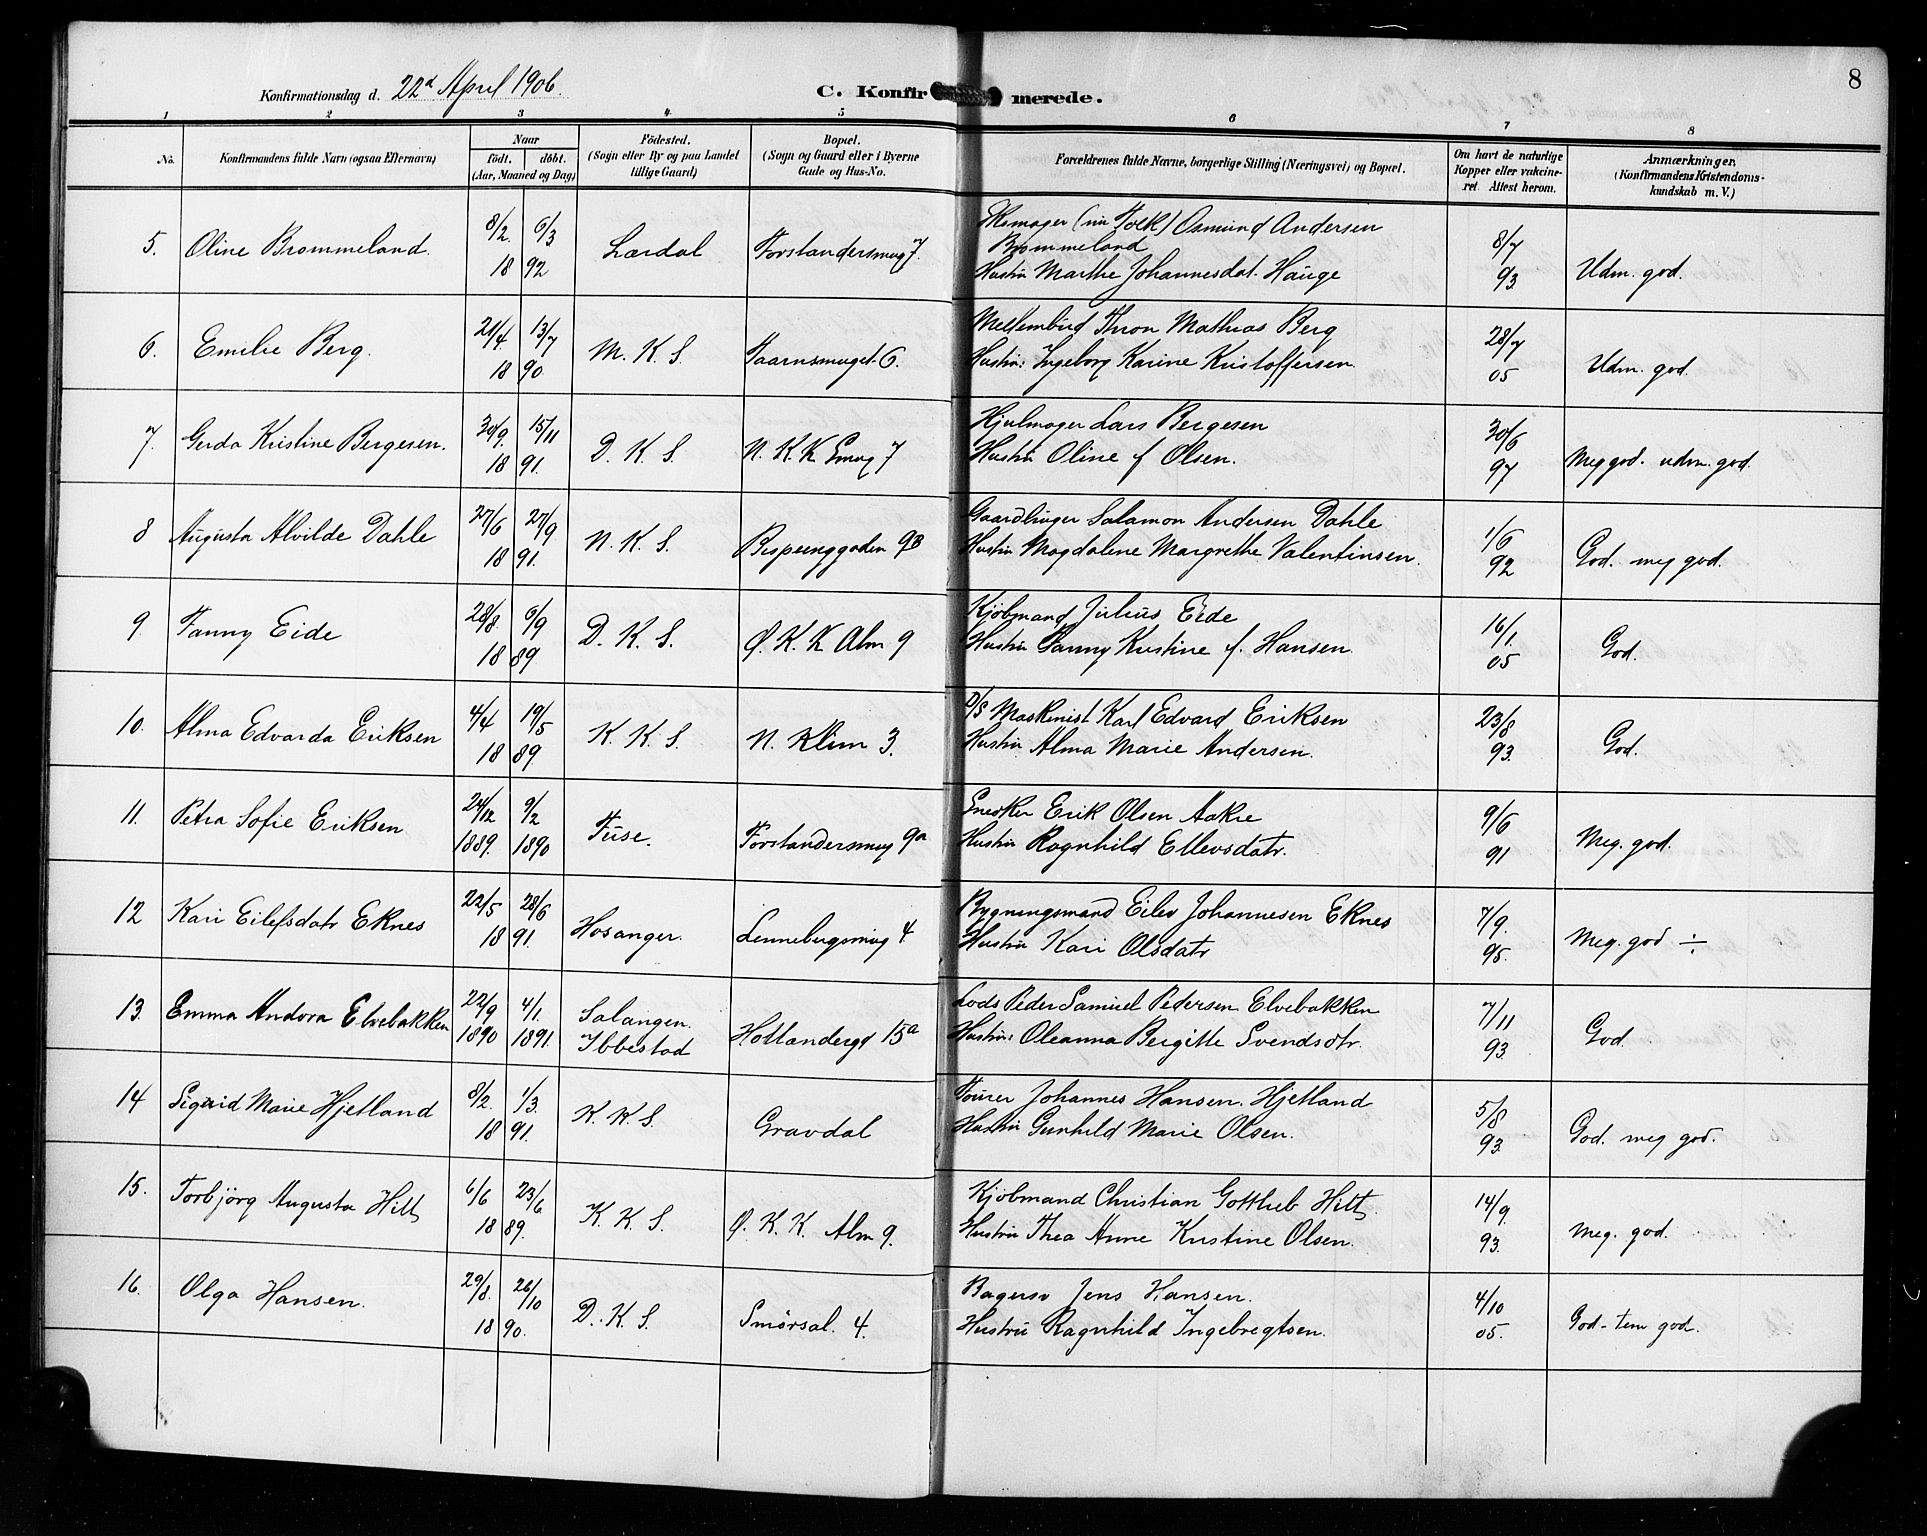 8
Konfirmationsdag d. 22d April 1906.
C. Konfirmerede.
1 2 3 4 5 6 7 8
No.
Konfirmandens fulde Navn (ogsaa Efternavn)
Naar
födt. döbt.
(Aar, Maaned og Dag)
Födested.
(Sogn eller By og paa Landet
tillige Gaard)
Bopæl.
(Sogn og Gaard eller i Byerne
Gade og Hus-No.
Forældrenes fulde Navne, borgerlige Stilling (Næringsvei) og Bopæl.
Om havt de naturlige
Kopper eller vakcine-
ret. Attest herom.
Anmærkninger.
(Konfirmandens Kristendoms-
kundskab m. V.)
5. Oline Brommeland. 8/2 6/3 18 92 Lærdal Forstandersmug 7.
Skomager (nu Tolk) Osmund Andersen
Brommeland
Hustru Marthe Johannesdat. Hauge
8/7 93. Udm. god.
6. Emilie Berg. 21/4 13/7 18 90. M. K. S. Taarnsmuget 6.
Mathias Berg
Hustru: Ingeborg Karine Kristoffersen.
28/7 05 Udm. god.
7. Gerda Kristine Bergesen. 30/9. 15/11 18 91. D. K. S. N. K. K Smug 7
Hjulmager Lars Bergesen
Hustru Oline f Olsen.
30/6 97 Meg god. udm. god.
8 Augusta Alvilde Dahle 27/6 27/9 18 91. N. K. S. Bispeenggaden 9B
Salamon Andersen Dahle
Hustru Magdalene Margrethe Valentinsen.
1/6 92 God. meg god.
9. Fanny Eide 28/8. 6/9 18 89 D. K. S. Ø. K. K Alm 9
Kjöbmand Julius Eide
Hustru Fanny Kristine f. Hansen.
16/1. 05 God.
10. Alma Edvarda Eriksen 4/4 19/5 18 89 K. K. S. N. Klim 3.
D/S Maskinist Karl Edvard Eriksen
Hustru Alma Marie Andersen.
23/8 93. God.
11. Petra Sofie Eriksen 24/12 9/2 1889. 1890 Fuse. Forstandersmug 9a
Snedker Erik Olsen Aakre
Hustru Ragnhild Ellevsdatr.
9/6 91 Meg. god.
12 Kari Eilefsdatr Eknes 22/5 28/6 18 91. Hosanger. 4
Bygningsmand Eilev Johannesen Eknes
Hustru Kari Olsdatr
7/9. 95. Meg. god ÷
13. Emma Andora Elvebakken 22/9 4/1. 1890 1891. Salangen.
Ibbestad Hollandergd 15a
Lods Peder Samuel Petersen Elvebakken
Hustru: Oleanna Bergitte Svendsdtr.
7/11 93. God
14 Sigrid Marie Hjetland 8/2. 1/3. 18 91. K. K. S. Gravdal
Johannes Hansen Hjetland
Hustru Gunhild Marie Olsen.
5/8 93. God. meg god.
15. Torbjörg Augusta Hilt 6/6 23/6 18 89. K. K. S. Ø. K. K. Alm 9.
Kjöbmand Christian Gottlieb Hilt
Hustru Thea Anne Kristine Olsen.
14/9. 93. Meg. god.
16. Olga Hansen. 29/8. 26/10 18 90. D. K. S. Smörsal. 4.
Bagersv Jens Hansen.
Hustru Ragnhild Ingebregtsen.
4/10 05. God - tem god.